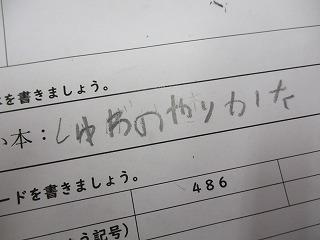 を書きましょう。
い本：しゅわのやりかた
ードを書きましょう。
486
う記号）